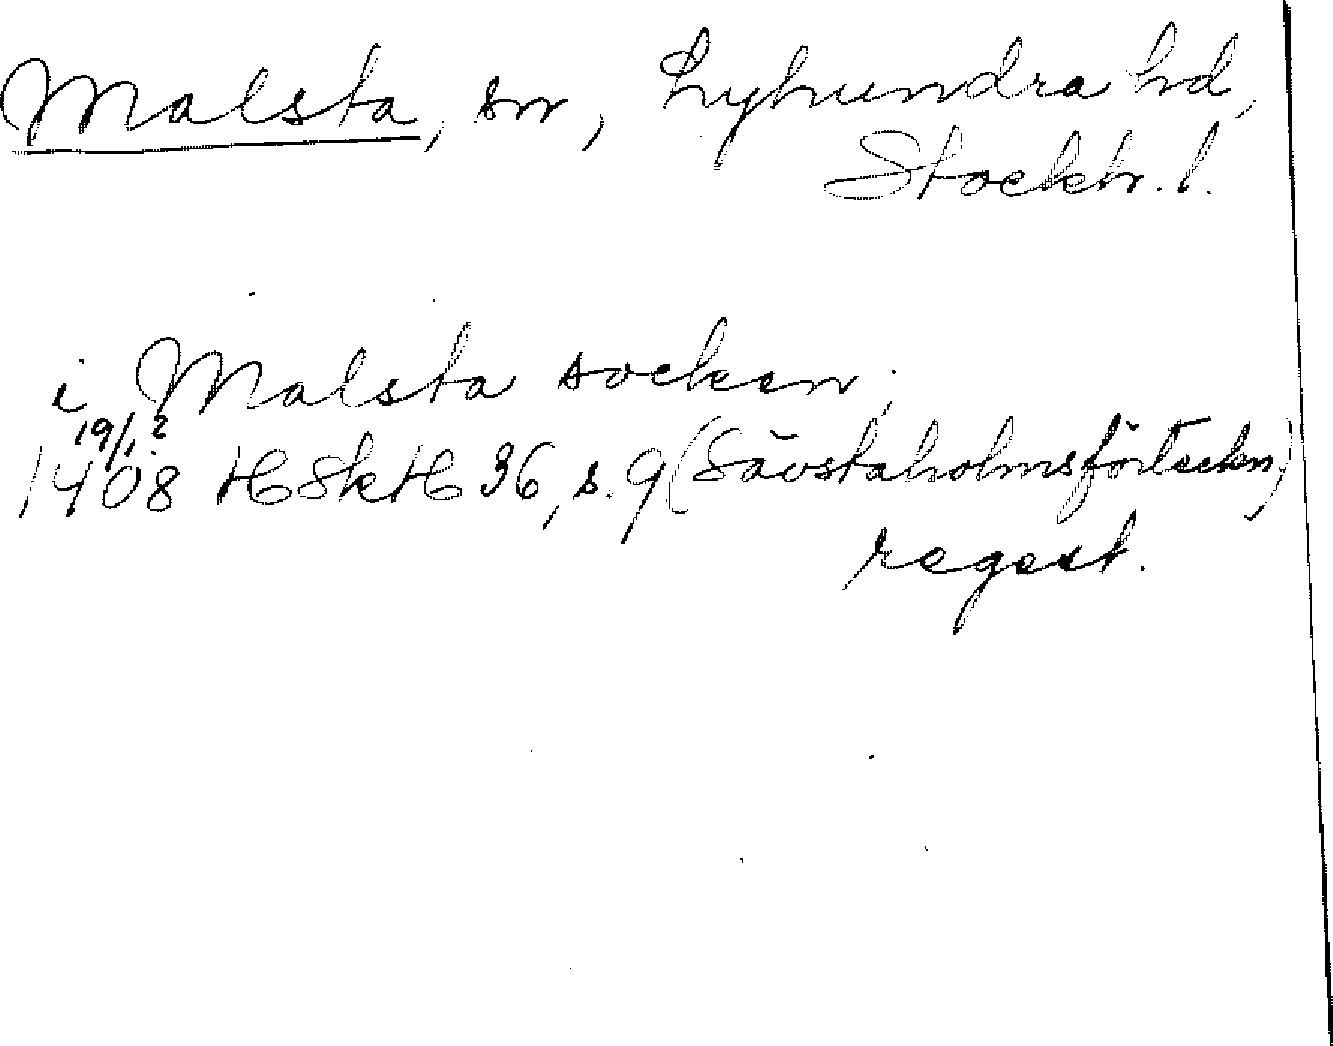 Malsta, sn, Lyhundra hd,
Stockh. l.
i Malsta socken
19/12
1408 HSkH 36, s. 9 (Sävstaholmsförteckn)
regest.